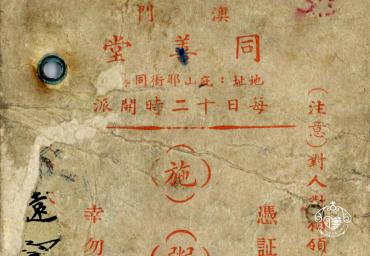 澳門
同善堂
地址：庇山耶街同
每日十二時開派
（施）
（粥
（注意）對人
領
憑証
幸勿
遠